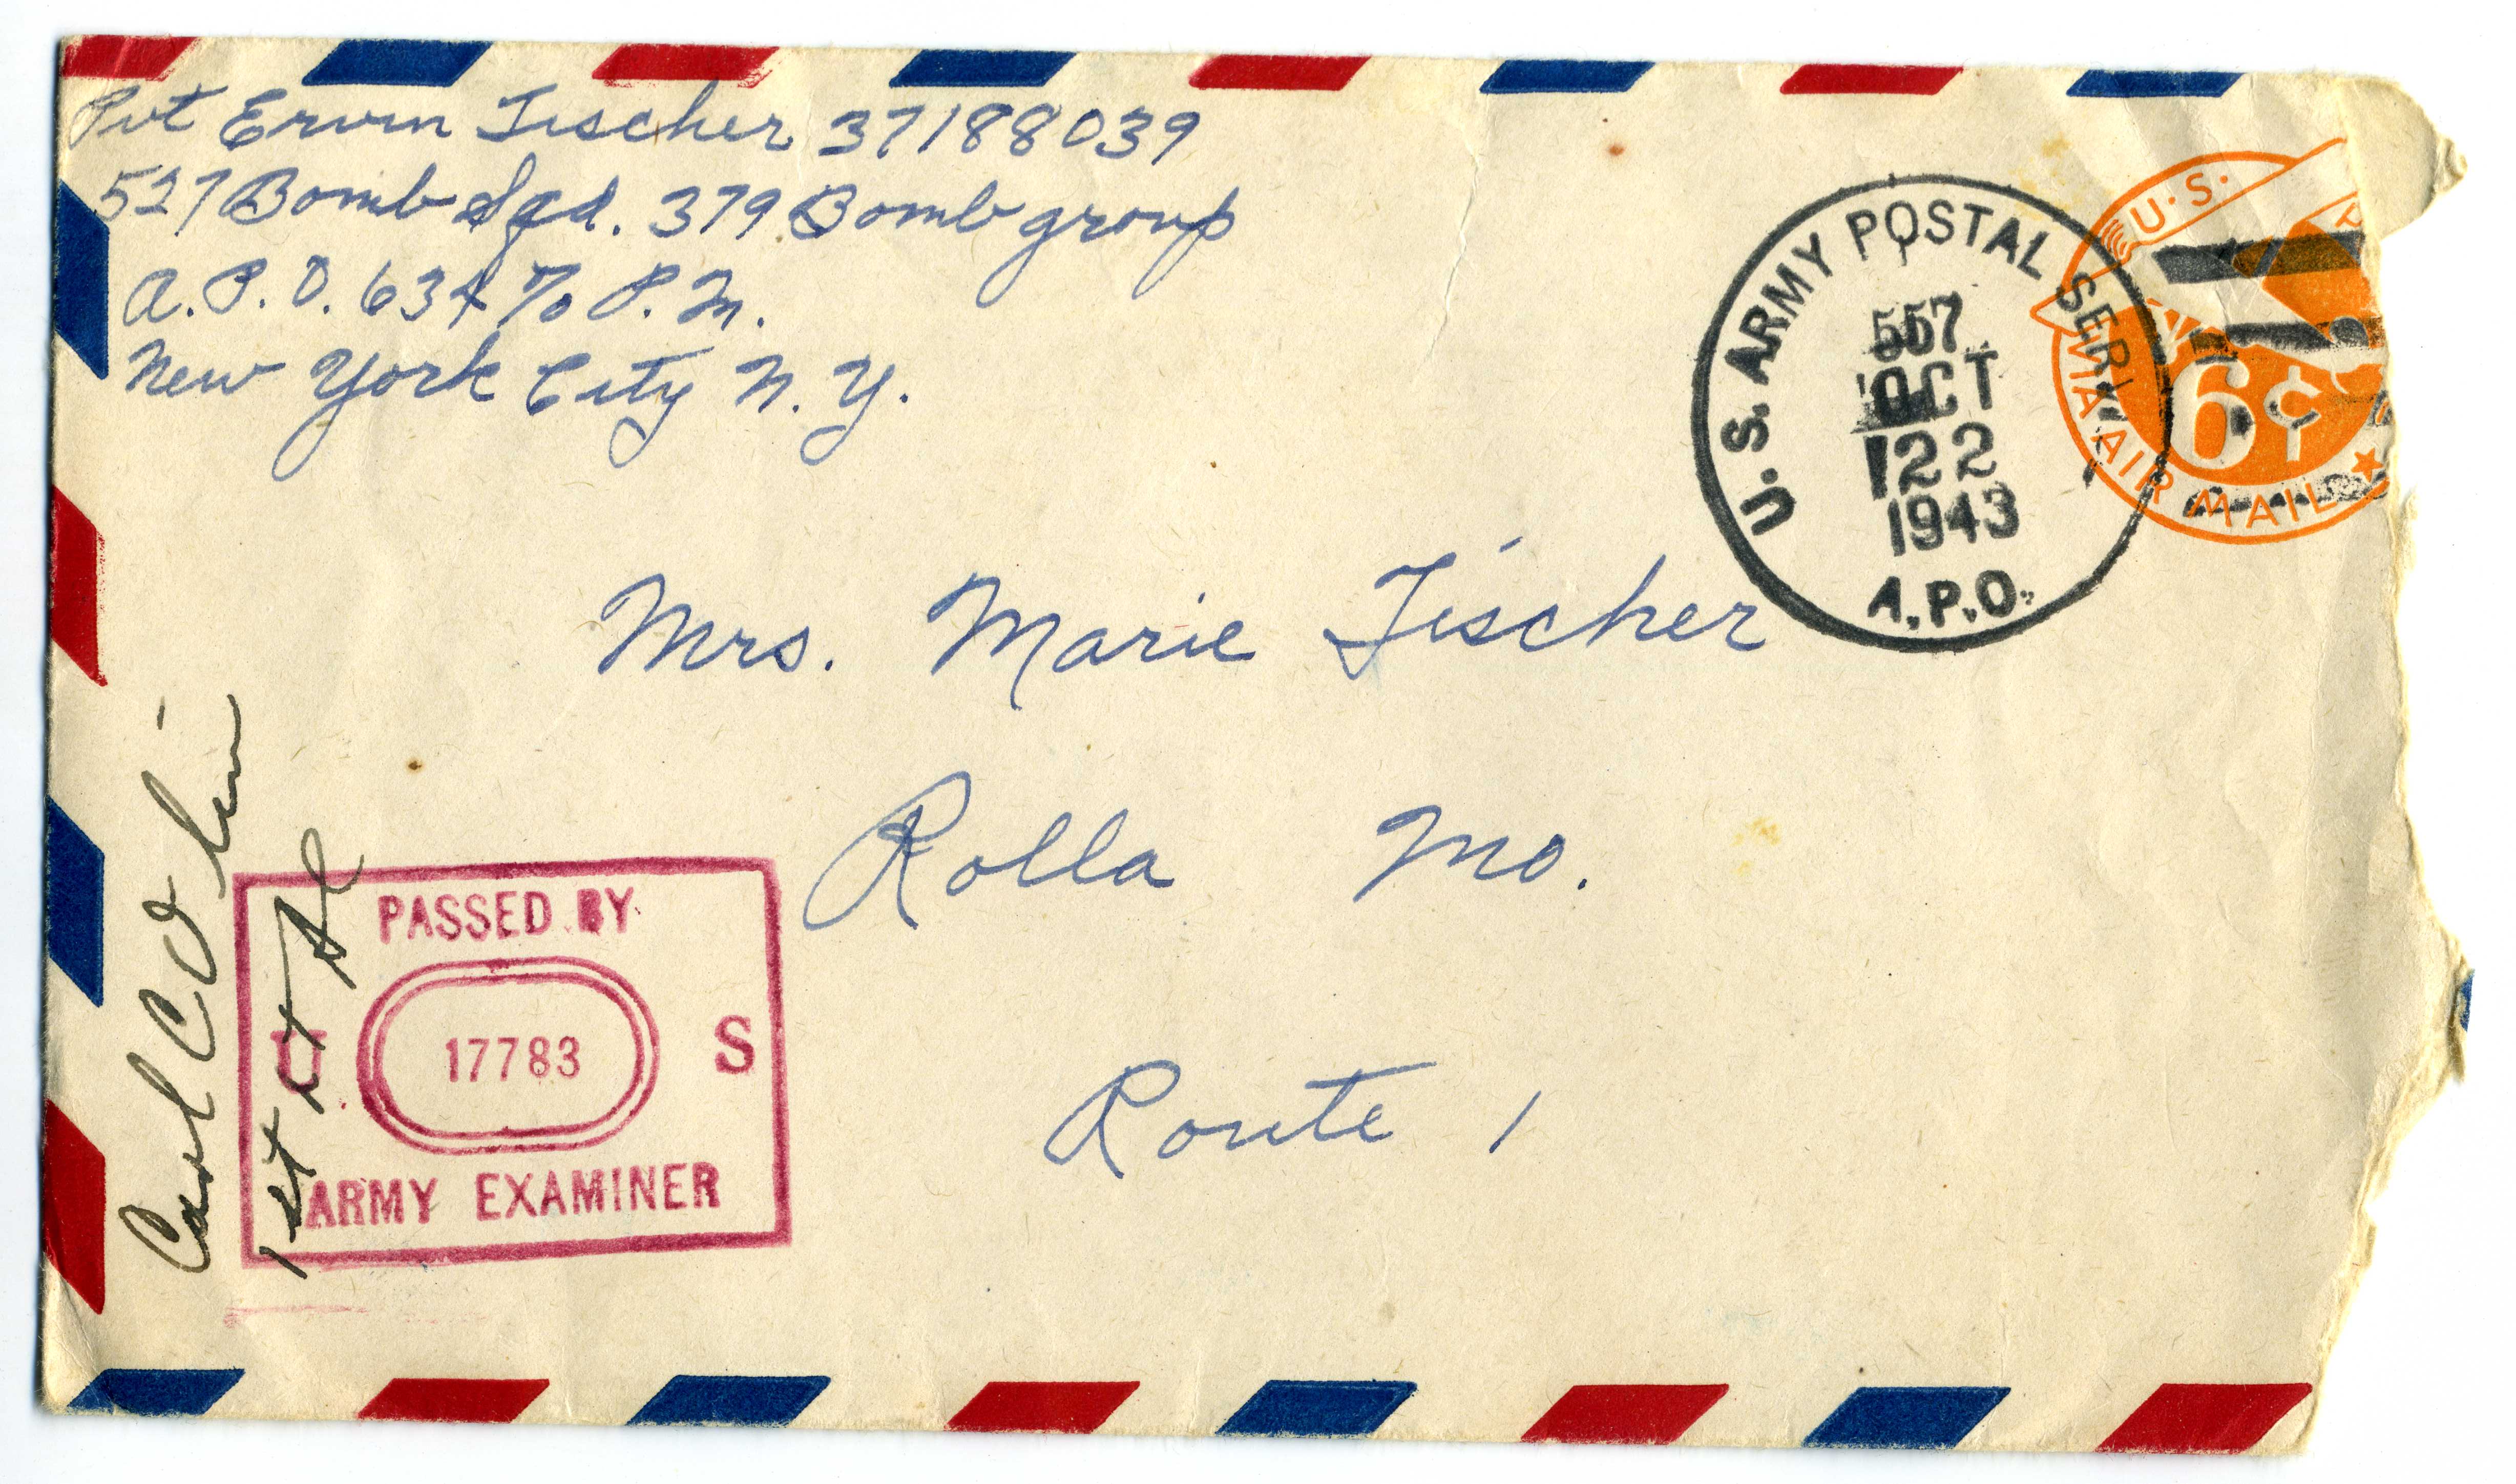 Pvt Ervin Tischer 37188039
527 Bomb Sqd. 379 Bomb group
A.P.O. 634 c/o P.M.
New York City N.Y.
U.S. ARMY POSTAL SERV
557
OCT
22
1943
A.P.O.
U.S.
6¢
VIA AIR MAIL
Mrs. Marie Tischer
Rolla Mo.
Route 1
Carl C
1st Lt
PASSED BY
U 17783 S
ARMY EXAMINER